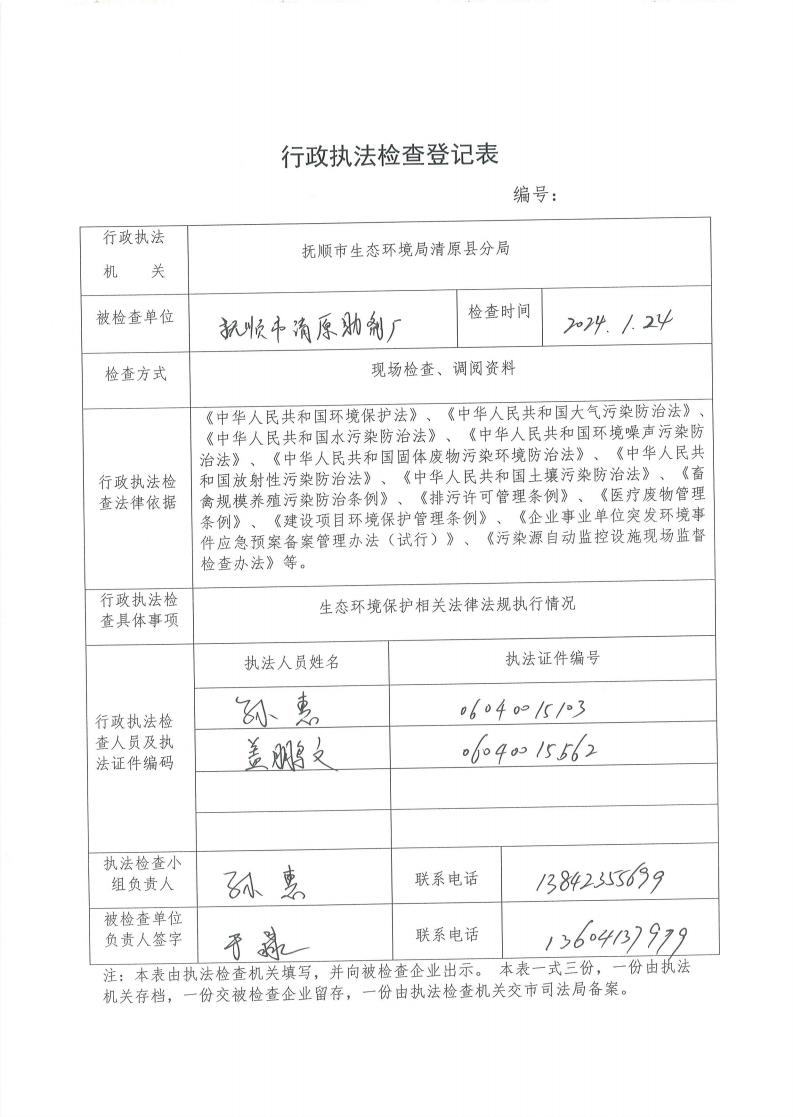 行政执法检查登记表
编号:
行政执法
机 关
抚顺市生态环境局清原县分局
被检查单位
抚顺市清原助剂厂
检查时间
2024.1.24
检查方式
现场检查、调阅资料
行政执法检
查法律依据
《中华人民共和国环境保护法》、《中华人民共和国大气污染防治法》、
《中华人民共和国水污染防治法》、《中华人民共和国环境噪声污染防
治法》、《中华人民共和国固体废物污染环境防治法》、《中华人民共
和国放射性污染防治法》、《中华人民共和国土壤污染防治法》、《畜
禽规模养殖污染防治条例》、《排污许可管理条例》、《医疗废物管理
条例》、《建设项目环境保护管理条例》、《企业事业单位突发环境事
件应急预案备案管理办法（试行）》、《污染源自动监控设施现场监督
检查办法》等。
行政执法检
查具体事项
生态环境保护相关法律法规执行情况
行政执法检
查人员及执
法证件编码
执法人员姓名
执法证件编号
孙惠
06040015103
盖鹏文
06040015562
执法检查小
组负责人
孙惠
联系电话
13842355699
被检查单位
负责人签字
于
联系电话
13604137979
注：本表由执法检查机关填写，并向被检查企业出示。 本表一式三份，一份由执法
机关存档，一份交被检查企业留存，一份由执法检查机关交市司法局备案。